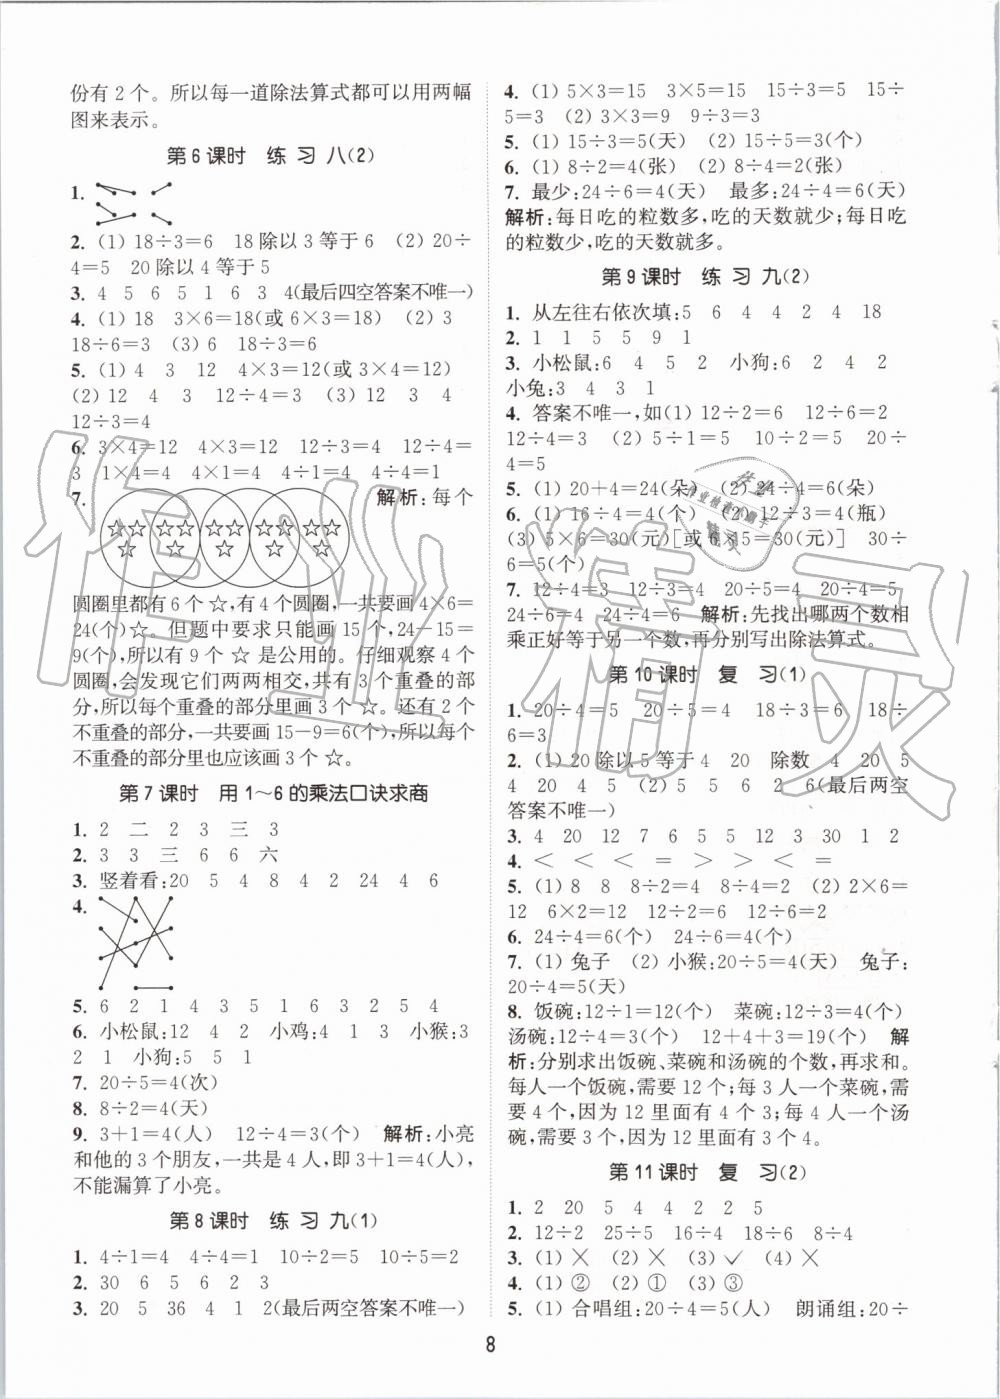 份有 2 个。所以每一道除法算式都可以用两幅
图来表示。
第 6 课时　练 习 八(2)
1.
2. (1) 18÷3=6　18 除以 3 等于 6　(2) 20÷
4=5　20 除以 4 等于 5
3. 4　5　6　5　1　6　3　4(最后四空答案不唯一)
4. (1) 18　3×6=18(或 6×3=18)　(2) 3
18÷6=3　(3) 6　18÷3=6
5. (1) 4　3　12　4×3=12(或 3×4=12)
(2) 12　4　3　12÷4=3　(3) 12　3　4
12÷3=4
6. 3×4=12　4×3=12　12÷3=4　12÷4=
3　1×4=4　4×1=4　4÷1=4　4÷4=1
7.　解析:每个
圆圈里都有 6 个☆,有 4 个圆圈,一共要画 4×6=
24(个)☆。但题中要求只能画 15 个,24-15=
9(个),所以有 9 个 ☆ 是公用的。仔细观察 4 个
圆圈,会发现它们两两相交,共有 3 个重叠的部
分,所以每个重叠的部分里画 3 个 ☆。还有 2 个
不重叠的部分,一共要画 15-9=6(个),所以每个
不重叠的部分里也应该画 3 个 ☆。
第 7 课时　用 1～6 的乘法口诀求商
1. 2　二　2　3　三　3
2. 3　3　三　6　6　六
3. 竖着看:20　5　4　8　4　2　24　4　6
4.
5. 6　2　1　4　3　5　1　6　3　2　5　4
6. 小松鼠:12　4　2　小鸡:4　1　3　小猴:3
2　1　小狗:5　5　1
7. 20÷5=4(次)
8. 8÷2=4(天)
9. 3+1=4(人)　12÷4=3(个)　解析:小亮
和他的 3 个朋友,一共是 4 人,即 3+1=4(人),
不能漏算了小亮。
第 8 课时　练 习 九(1)
1. 4÷1=4　4÷4=1　10÷2=5　10÷5=2
2. 30　6　5　5　6　2　3
3. 20　5　36　4　1　2(最后两空答案不唯一)
4. (1) 5×3=15　3×5=15　15÷3=5　15÷
5=3　(2) 3×3=9　9÷3=3
5. (1) 15÷3=5(天)　(2) 15÷5=3(个)
6. (1) 8÷2=4(张)　(2) 8÷4=2(张)
7. 最少:24÷6=4(天)　最多:24÷4=6(天)
解析:每日吃的粒数多,吃的天数就少;每日吃
的粒数少,吃的天数就多。
第 9 课时　练 习 九(2)
1. 从左往右依次填:5　6　4　4　2　4　18
2. 1　1　5　5　9　1
3. 小松鼠:6　4　5　2　小狗:6　2　4　4
小兔:3　4　3　1
4. 答案不唯一,如(1) 12÷2=6　12÷6=2
12÷4=3　(2) 5÷1=5　10÷2=5　20÷
4=5
5. (1) 20+4=24(朵)　(2) 24÷4=6(朵)
6. (1) 16÷4=4(个)　(2) 12÷4=3(瓶)
(3) 5×6=30(元)[或 6×5=30(元)]　30÷
6=5(个)
7. 12÷4=3　12÷3=4　20÷5=4　20÷4=5
24÷6=4　24÷4=6　解析:先找出哪两个数相
乘正好等于另一个数,再分别写出除法算式。
第 10 课时　复　习(1)
1. 20÷4=5　20÷5=4　18÷3=6　18÷
6=3
2. (1) 20 除以 5 等于 4　20　除数　4　20　5
(2) 20　4　5　5　5　6　2　6(最后两空
答案不唯一)
3. 4　20　12　7　6　5　5　12　3　30　1　2
4. <　<　<　=　>　>　<　=
5. (1) 8　8　8÷2=4　8÷4=2　(2) 2×6=
12　6×2=12　12÷2=6　12÷6=2
6. 24÷4=6(个)　24÷6=4(个)
7. (1) 兔子　(2) 小猴:20÷5=4(天)　兔子:
20÷4=5(天)
8. 饭碗:12÷1=12(个)　菜碗:12÷3=4(个)
汤碗:12÷4=3(个)　12+4+3=19(个)　解
析:分别求出饭碗、菜碗和汤碗的个数,再求和。
每人一个饭碗,需要 12 个;每 3 人一个菜碗,需
要 4 个,因为 12 里面有 4 个 3;每 4 人一个汤
碗,需要 3 个,因为 12 里面有 3 个 4。
第 11 课时　复　习(2)
1. 2　20　5　4　4　2　2　5
2. 12÷2　25÷5　16÷4　18÷6　8÷4
3. (1) ×　(2) ×　(3) ✓　(4) ×
4. (1) ②　(2) ①　(3) ③
5. (1) 合唱组:20÷4=5(人)　朗诵组:20÷
8
作业精灵